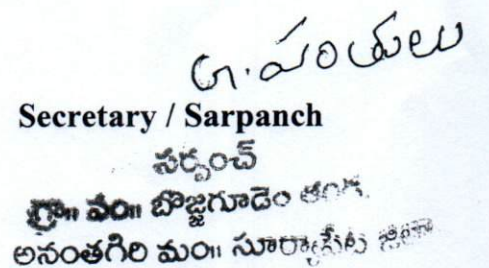 G. పంతులు
Secretary / Sarpanch
సర్పంచ్
గ్రా॥ పం॥ బొజ్జగూడెం తండ.
అనంతగిరి మం॥ సూర్యాపేట జిల్లా